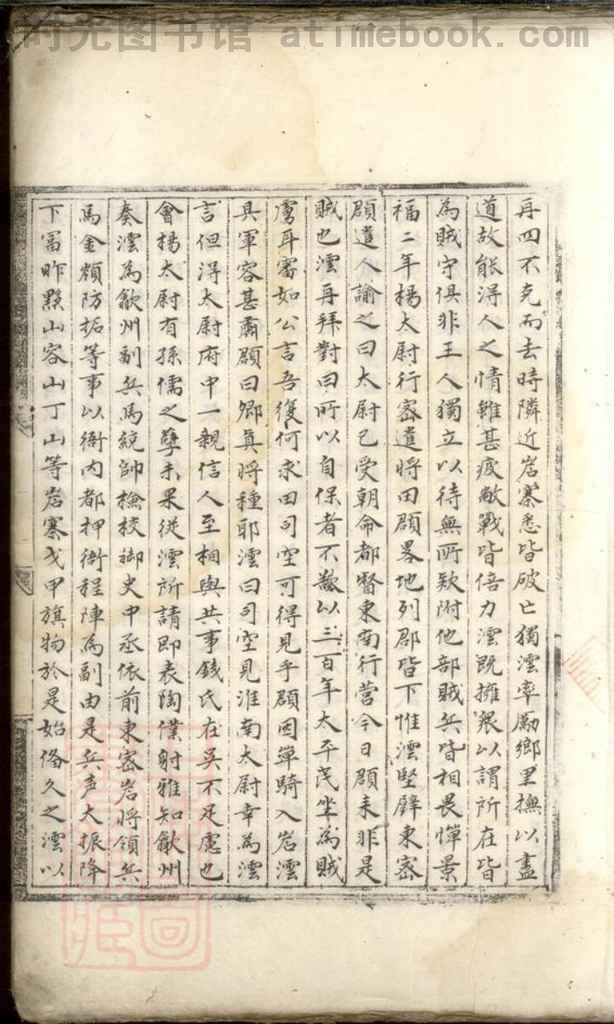 时光图书馆 atimebook.com
再四不克而去時隣近岩寨悉皆破亡獨澐率勵鄉里撫以盡
道故能得人之情雖甚疲敝戰皆倍力澐既擁衆以謂所在皆
為賊守俱非王人獨立以待無所欵附他部賊兵皆相畏憚景
福二年楊太尉行密遣將田頵畧地列郡皆下惟澐堅壁東密
頵遣人諭之曰太尉已受朝命都督東南行營今日頵来非是
賊也澐再拜對曰所以自保者不敢以三百年太平民坐為賊
虜耳審如公言吾復何求田司空可得見乎頵因单騎入岩澐
具軍容甚肅頵曰卿真將種耶澐曰司空見淮南太尉幸為澐
言但得太尉府中一親信人至相與共事錢氏在吴不足慮也
會楊太尉有孫儒之孽未果從澐所請即表陶僕射雅知歙州
奏澐為歙州副兵馬統帥檢校御史中丞依前東密岩將領兵
馬金額防拓等事以衙内都押衙程陣為副由是兵声大振降
下冨昨黟山容山丁山等岩寨戈甲旗物於是始俻久之澐以
圖